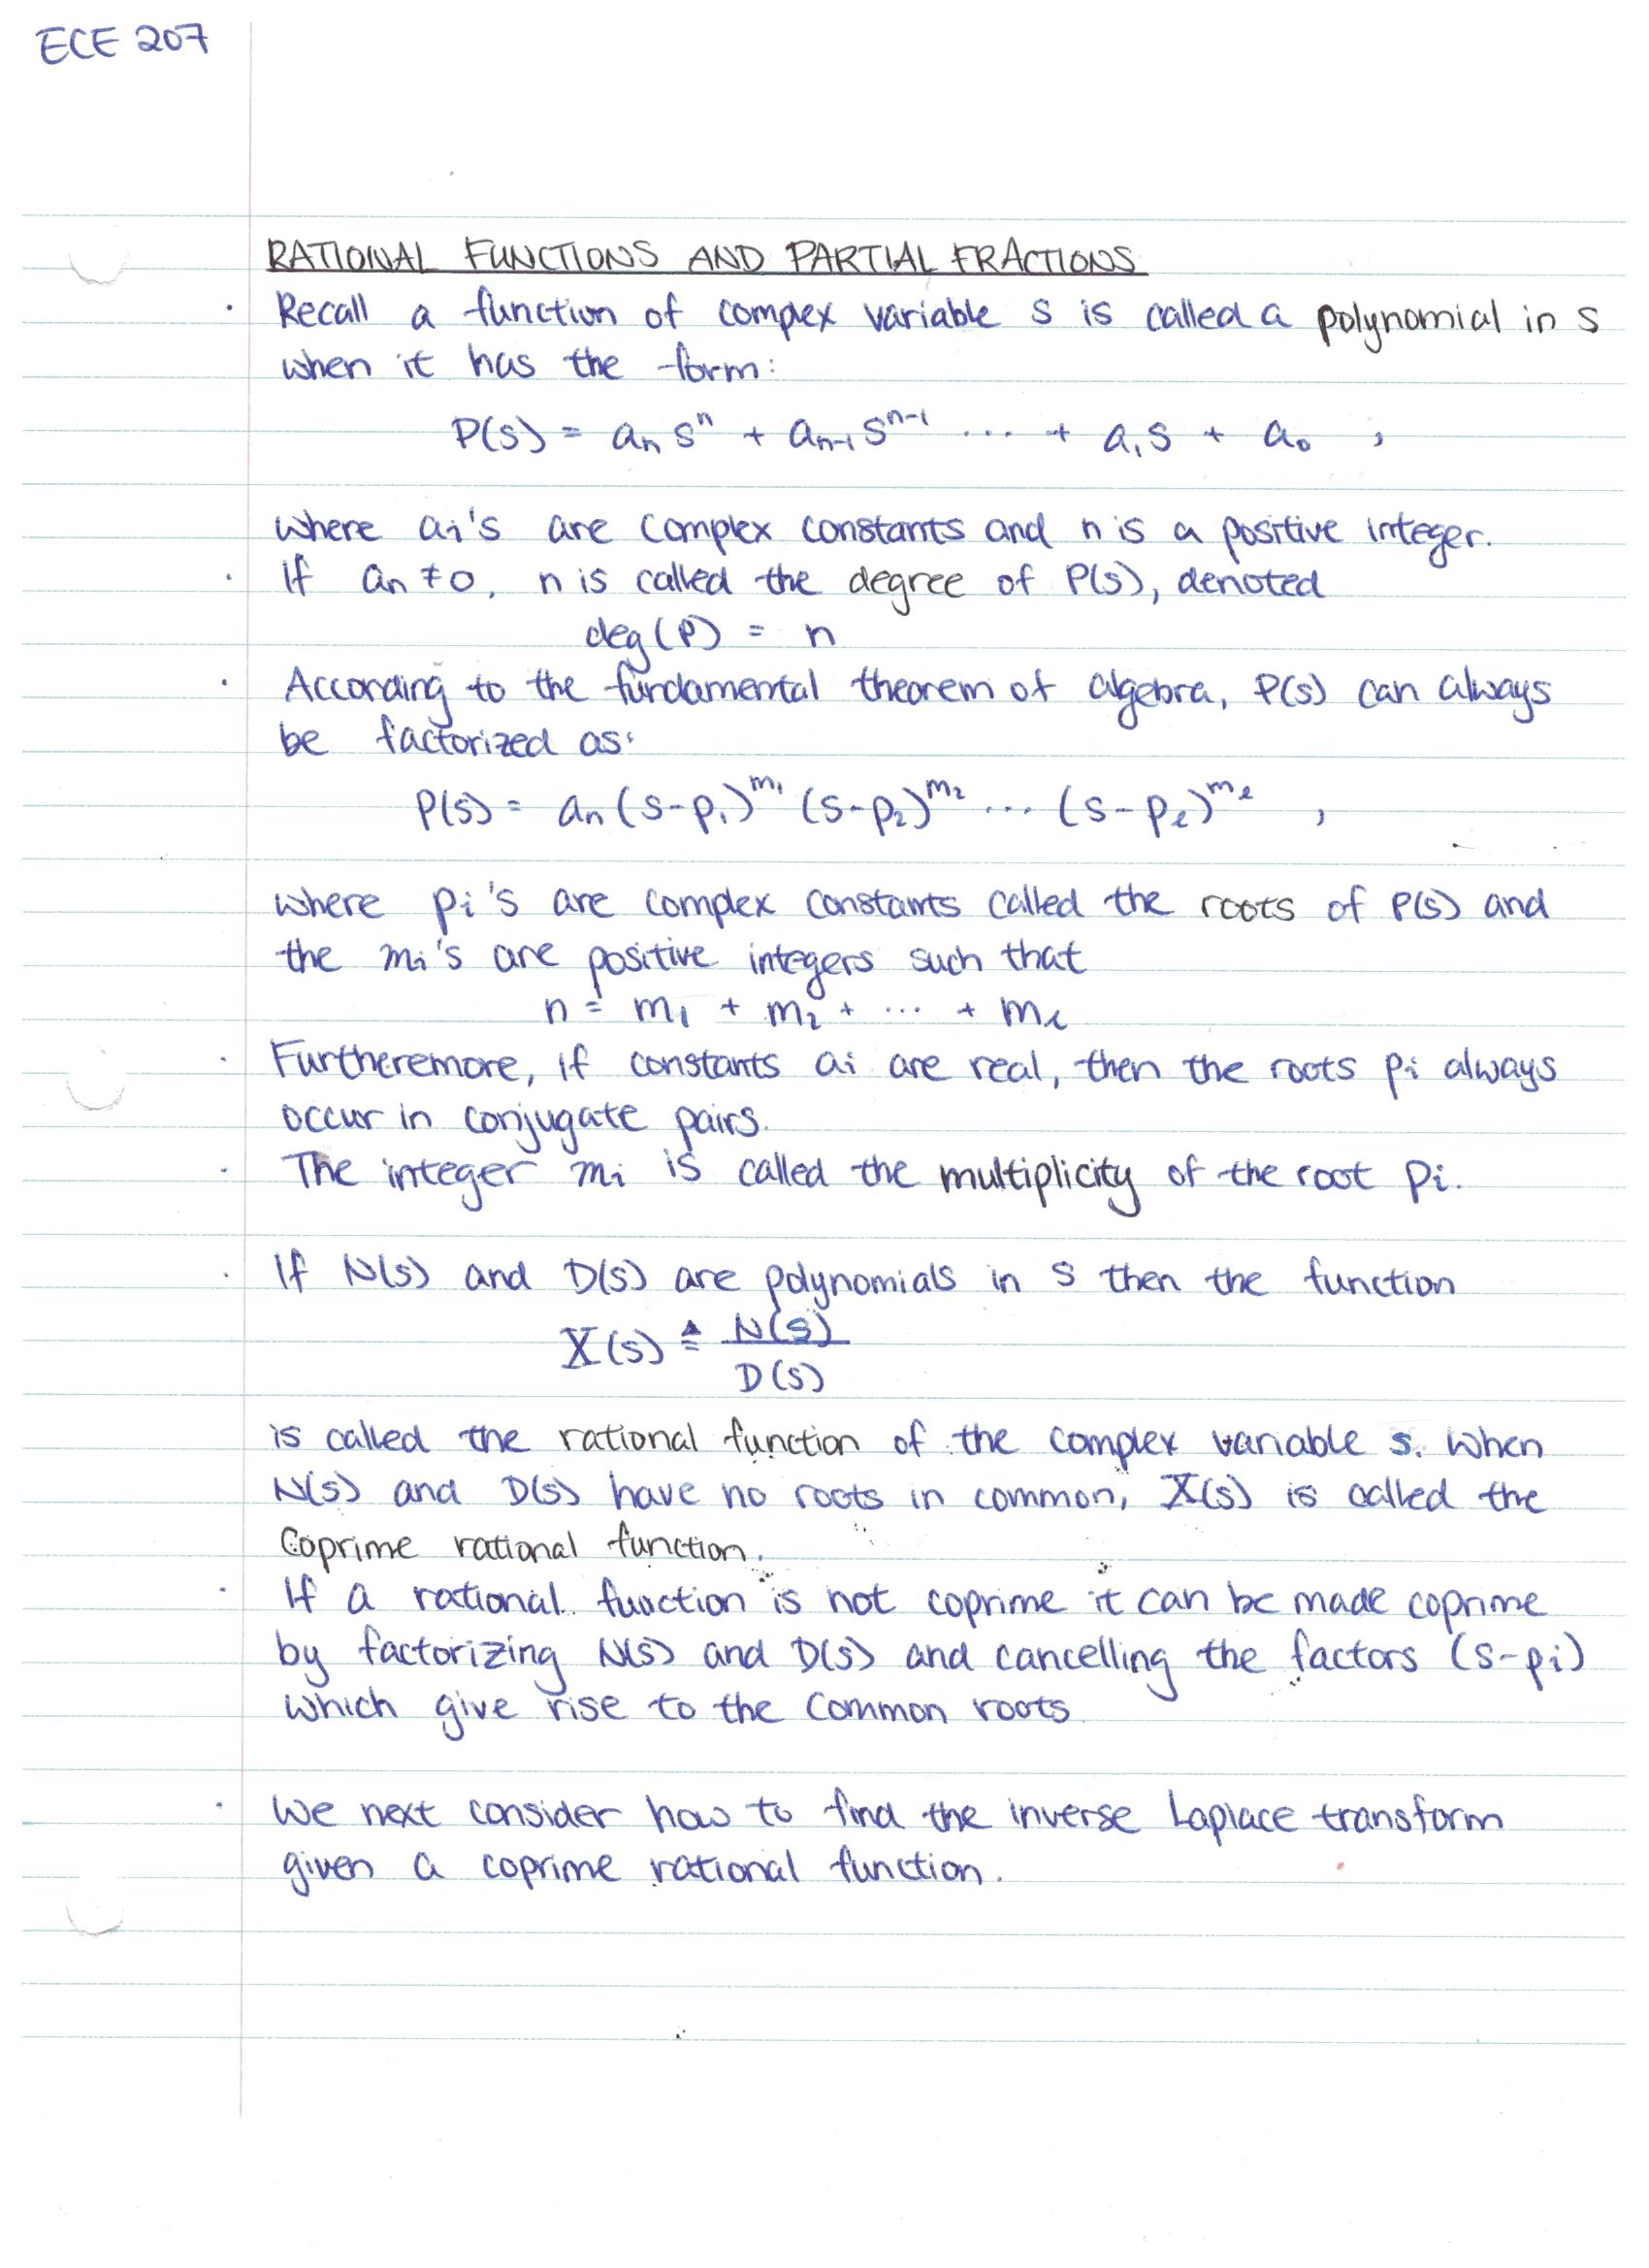 ECE 207
RATIONAL FUNCTIONS AND PARTIAL FRACTIONS
· Recall a function of complex variable s is called a polynomial in s
when it has the form:
P(s) = aₙ sⁿ + aₙ₋₁ sⁿ⁻¹ ... + a₁s + a₀ ,
where aᵢ's are complex constants and n is a positive integer.
· If aₙ ≠ 0, n is called the degree of P(s), denoted
deg(P) = n
· According to the fundamental theorem of algebra, P(s) can always
be factorized as:
P(s) = aₙ (s-p₁)^m₁ (s-p₂)^m₂ ... (s-pₗ)^mₗ ,
where pi's are complex constants called the roots of P(s) and
the mi's are positive integers such that
n = m₁ + m₂ + ... + mₗ
· Furtheremore, if constants ai are real, then the roots pi always
occur in conjugate pairs.
· The integer mi is called the multiplicity of the root pi.
· If N(s) and D(s) are polynomials in s then the function
X(s) ≜ N(s)
D(s)
is called the rational function of the complex variable s. When
N(s) and D(s) have no roots in common, X(s) is called the
Coprime rational function.
· If a rational function is not coprime it can be made coprime
by factorizing N(s) and D(s) and cancelling the factors (s-pi)
which give rise to the common roots
· We next consider how to find the inverse Laplace transform
given a coprime rational function.